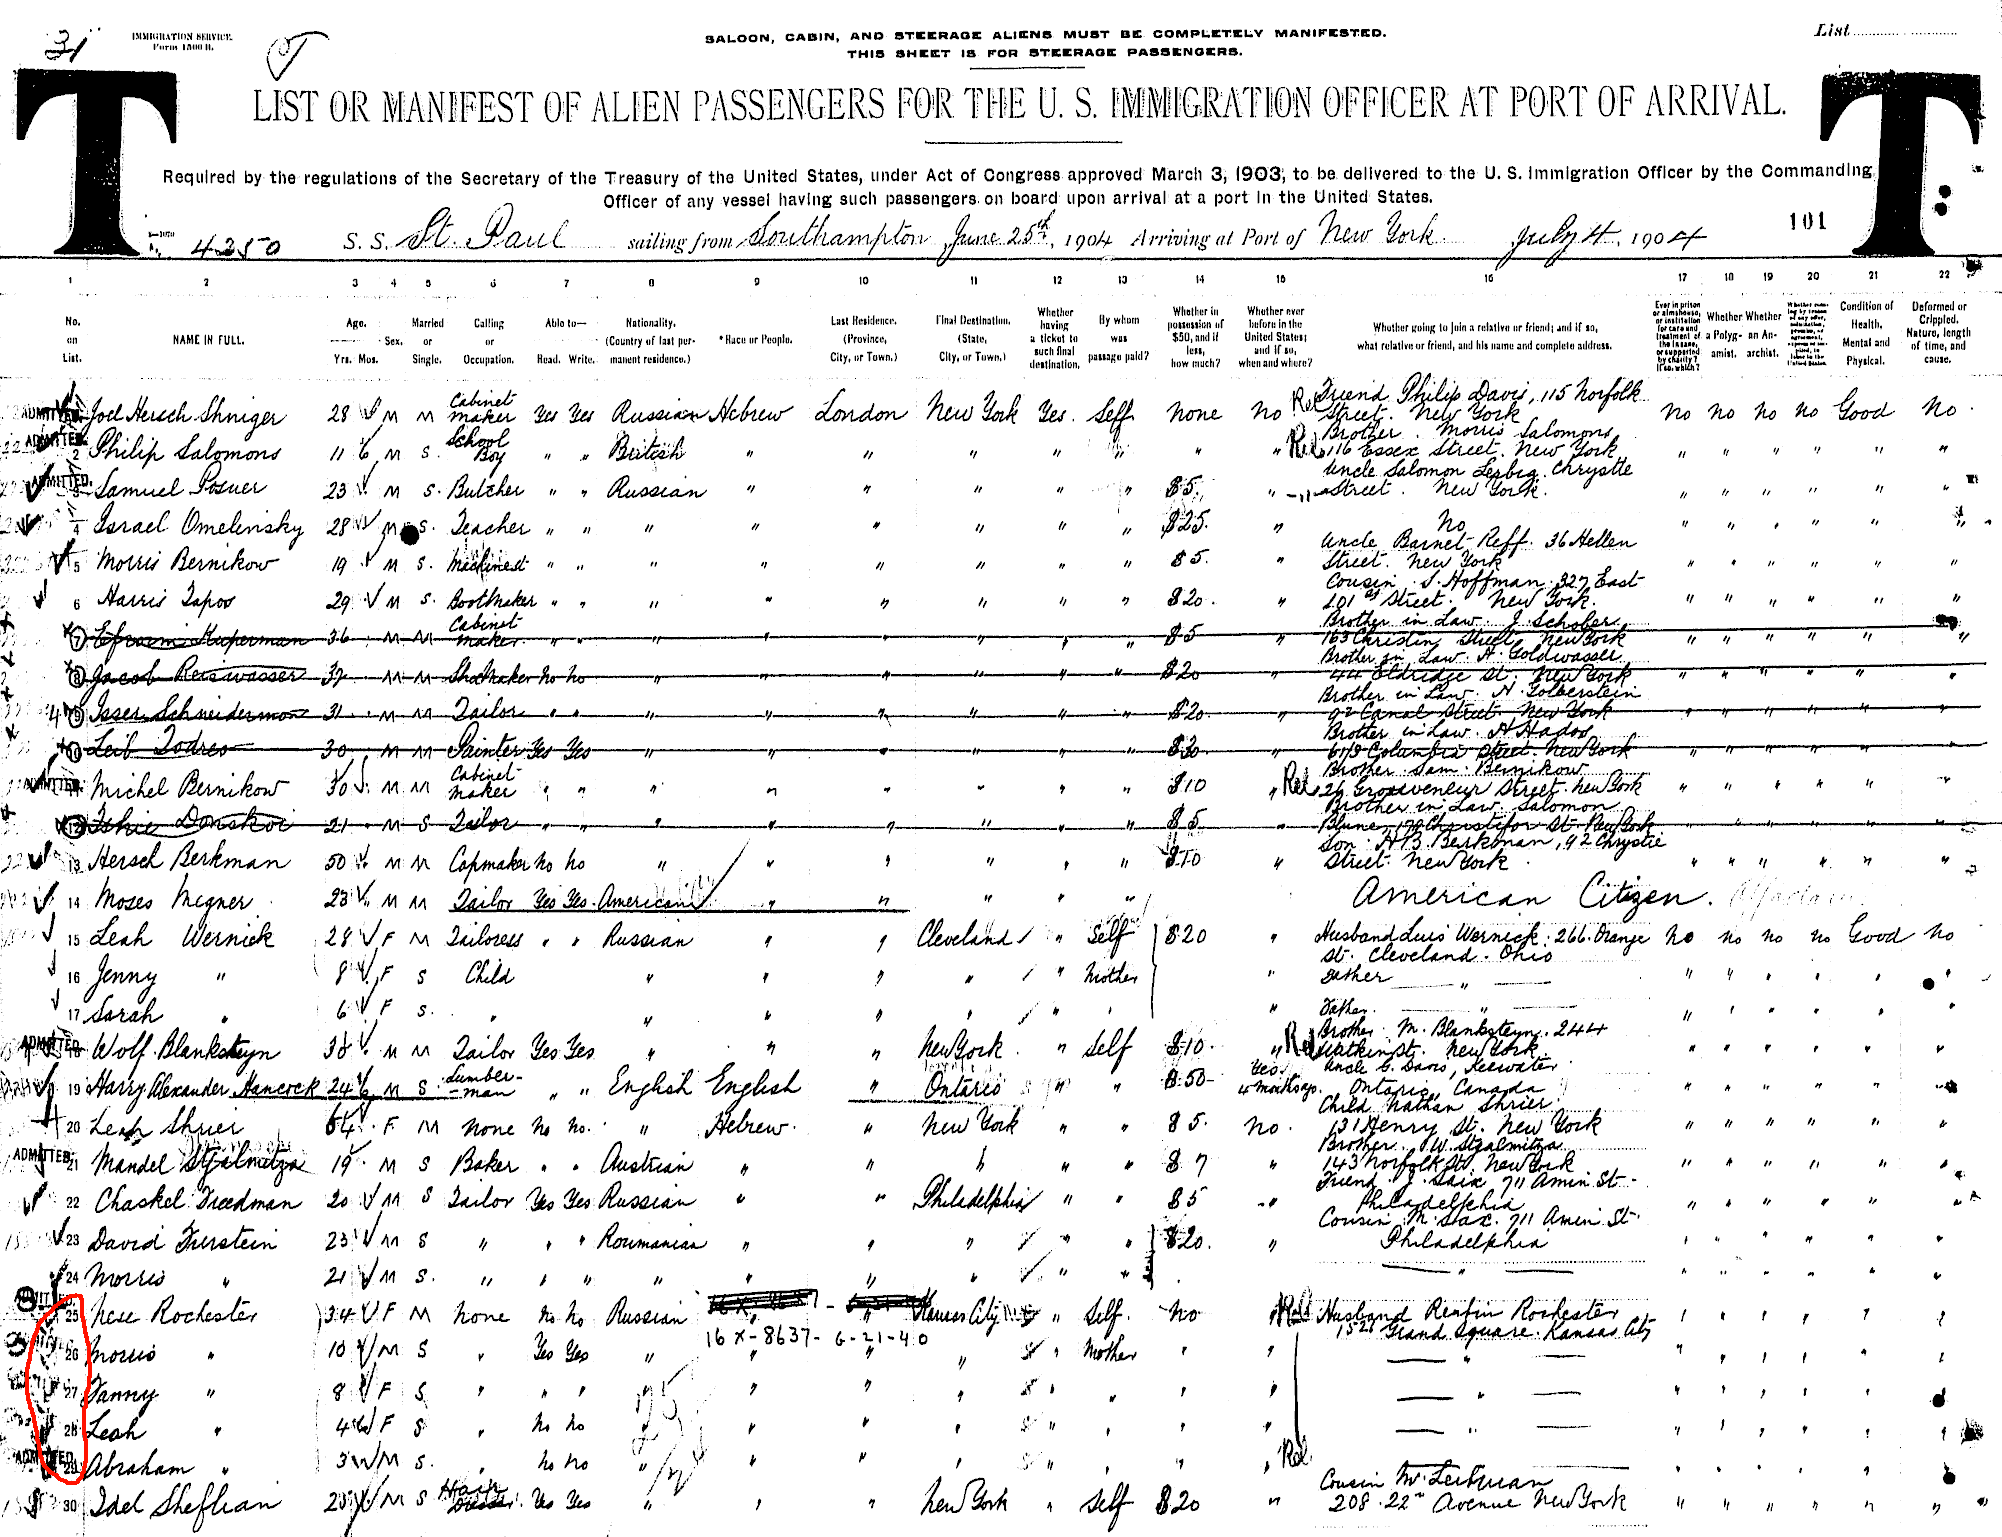 31 IMMIGRATION SERVICE. Form 1500 B.
SALOON, CABIN, AND STEERAGE ALIENS MUST BE COMPLETELY MANIFESTED.
THIS SHEET IS FOR STEERAGE PASSENGERS.
List
T T
LIST OR MANIFEST OF ALIEN PASSENGERS FOR THE U. S. IMMIGRATION OFFICER AT PORT OF ARRIVAL.
Required by the regulations of the Secretary of the Treasury of the United States, under Act of Congress approved March 3, 1903, to be delivered to the U. S. Immigration Officer by the Commanding
Officer of any vessel having such passengers on board upon arrival at a port in the United States.
4250 S. S. St. Paul sailing from Southampton June 25th, 1904 Arriving at Port of New York July 4, 1904 101
1 2 3 4 5 6 7 8 9 10 11 12 13 14 15 16 17 18 19 20 21 22
No. on List. NAME IN FULL. Age. Yrs. Mos. Sex. Married or Single. Calling or Occupation. Able to— Read. Write. Nationality. (Country of last permanent residence.) *Race or People. Last Residence. (Province, City, or Town.) Final Destination. (State, City, or Town.) Whether having a ticket to such final destination. By whom was passage paid? Whether in possession of $50, and if less, how much? Whether ever before in the United States; and if so, when and where? Whether going to join a relative or friend; and if so, what relative or friend, and his name and complete address. Ever in prison or almshouse, or institution for care and treatment of the insane, or supported by charity? If so, which? Whether a Polygamist. Whether an Anarchist. Condition of Health, Mental and Physical. Deformed or Crippled. Nature, length of time, and cause.
ADMITTED Joel Hersch Shniger 28 M M Cabinet maker Yes Yes Russian Hebrew London New York Yes. Self none no Rel Friend Philip Davis, 115 Norfolk Street. New York no no no no Good No.
ADMITTED 2 Philip Salomons 11 6 M S. School Boy " " British " " " " " " " Rel Brother. Morris Salomons 116 Essex Street. New York " " " " " "
ADMITTED. 3 Samuel Posner 23 M S. Butcher " " Russian " " " " " $5. " Uncle Salomon Lesbig. Chrystie Street. New York. " " " " " "
4 Israel Omelinsky 28 M S. Teacher " " " " " " " " $25. " No " " " " " "
5 Morris Bernikow 19 M S. Machinest " " " " " " " " $5. " Uncle Barnet Reff. 36 Hellen Street. New York " " " " " "
6 Harris Tapos 29 M S. Bootmaker " " " " " " " " $20. " Cousin S. Hoffman. 327 East 101st Street. New York. " " " " " "
7 Efroim Kuperman 36 M M Cabinet maker " " " " " " " " $5 " Brother in Law. J. Schober 163 Christin Street New York " " " " " "
8 Jacob Reiswasser 37 M M Shoemaker no no " " " " " " $20 " Brother in Law. H. Goldwasser 44 Eldridge St. New York " " " " " "
9 Isser Schneiderman 31 M M Tailor " " " " " " " " $20. " Brother in Law. H. Golberstein 92 Canal Street. New York " " " " " "
10 Leib Todres 30 M M Painter Yes Yes " " " " " " $30 " Brother in Law. H Hados Columbia Street. New York " " " " " "
ADMITTED 11 Michel Bernikow 30 M M Cabinet maker " " " " " " " " $10 " Rel Brother Sam. Bernikow 26 Grosveneur Street. New York " " " " " "
12 Donskoi 21 M S Tailor " " " " " " " " $5 " Brother in Law. Salomon Blume, 179 Christifor St. New York " " " " " "
13 Hersch Berkman 50 M M Capmaker no no " " " " " " $10 " Son. H B. Berkman, 92 Chrystie Street New York " " " " " "
14 Moses Megner 23 M M Tailor Yes Yes American " " " " " American Citizen.
15 Leah Wernick 28 F M Tailoress " " Russian " " Cleveland " Self $20 " Husband Luis Wernick. 266 Orange St. Cleveland. Ohio no no no no Good no
16 Jenny " 8 F S Child " " " " " Mother " Father " " " " " " "
17 Sarah " 6 F S. " " " " " " " " Father. " " " " " " "
ADMITTED 18 Wolf Blanksteyn 38 M M Tailor Yes Yes " " " New York. " Self $10. " Rel Brother M. Blanksteyn. 244 Watkin St. New York " " " " " "
19 Harry Alexander Hancock 24 6 M S Lumber-man " " English English " Ontario " " $50- Yes 4 months ago. Uncle G. Davis, Keewater Ontario, Canada " " " " " "
20 Leah Shrier 64 F M none no no. " Hebrew. " New York " " $5. no. Child Nathan Shrier 131 Henry St. New York " " " " " "
ADMITTED 21 Mandel Stzalmitza 19 M S Baker " " Austrian " " " " " $7 " Brother. W. Stzalmitza 143 Norfolk St. New York " " " " " "
22 Chaskel Freedman 20 M S Tailor Yes Yes Russian " " Philadelphia " " $5 " Friend. J. Saix 711 Amin St. Philadelphia " " " " " "
23 David Furstein 23 M S " " " Roumanian " " " " " $20. " Cousin M. Sax. 711 Amin St. Philadelphia " " " " " "
24 Morris " 21 M S. " " " " " " " " " " " " " " " "
25 Nese Rochester 34 F M none no no Russian Kansas City " Self. no " Rel Husband Renfin Rochester 1528 Grand Square. Kansas City " " " " " "
26 Morris " 10 M S " Yes Yes " 16 X-8637- 6-21-40 " " Mother " " " " " " " " "
27 Fanny " 8 F S " " " " " " " " " " " " " " " " " "
28 Leah " 4 F S " no no " " " " " " " " " " " " " " "
ADMITTED 29 Abraham " 3 M S. " no no " " " " " " " " Rel. " " " " " "
30 Idel Sheflian 25 M S Hair Dresser Yes Yes " " " New York " Self $20 " Cousin M. Leibman 208. 22nd Avenue New York " " " " " "